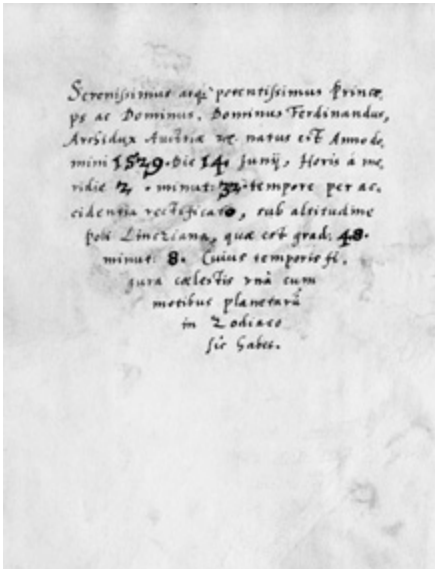 Serenissimus atq; potentissimus Prince,
ps ac Dominus, Dominus Ferdinandus,
Archidux Austriæ &c. natus est Anno do,
mini 1529. Die 14. Junij, Horis á me,
ridie 2 . minut: 32. tempore per ac,
cidentia rectificato, sub altitudine
poli Linciana, quæ est grad: 48.
minut: 8. Cuius temporis fi,
gura cœlestis vnà cum
motibus planetarũ
in Zodiaco
sic habet.